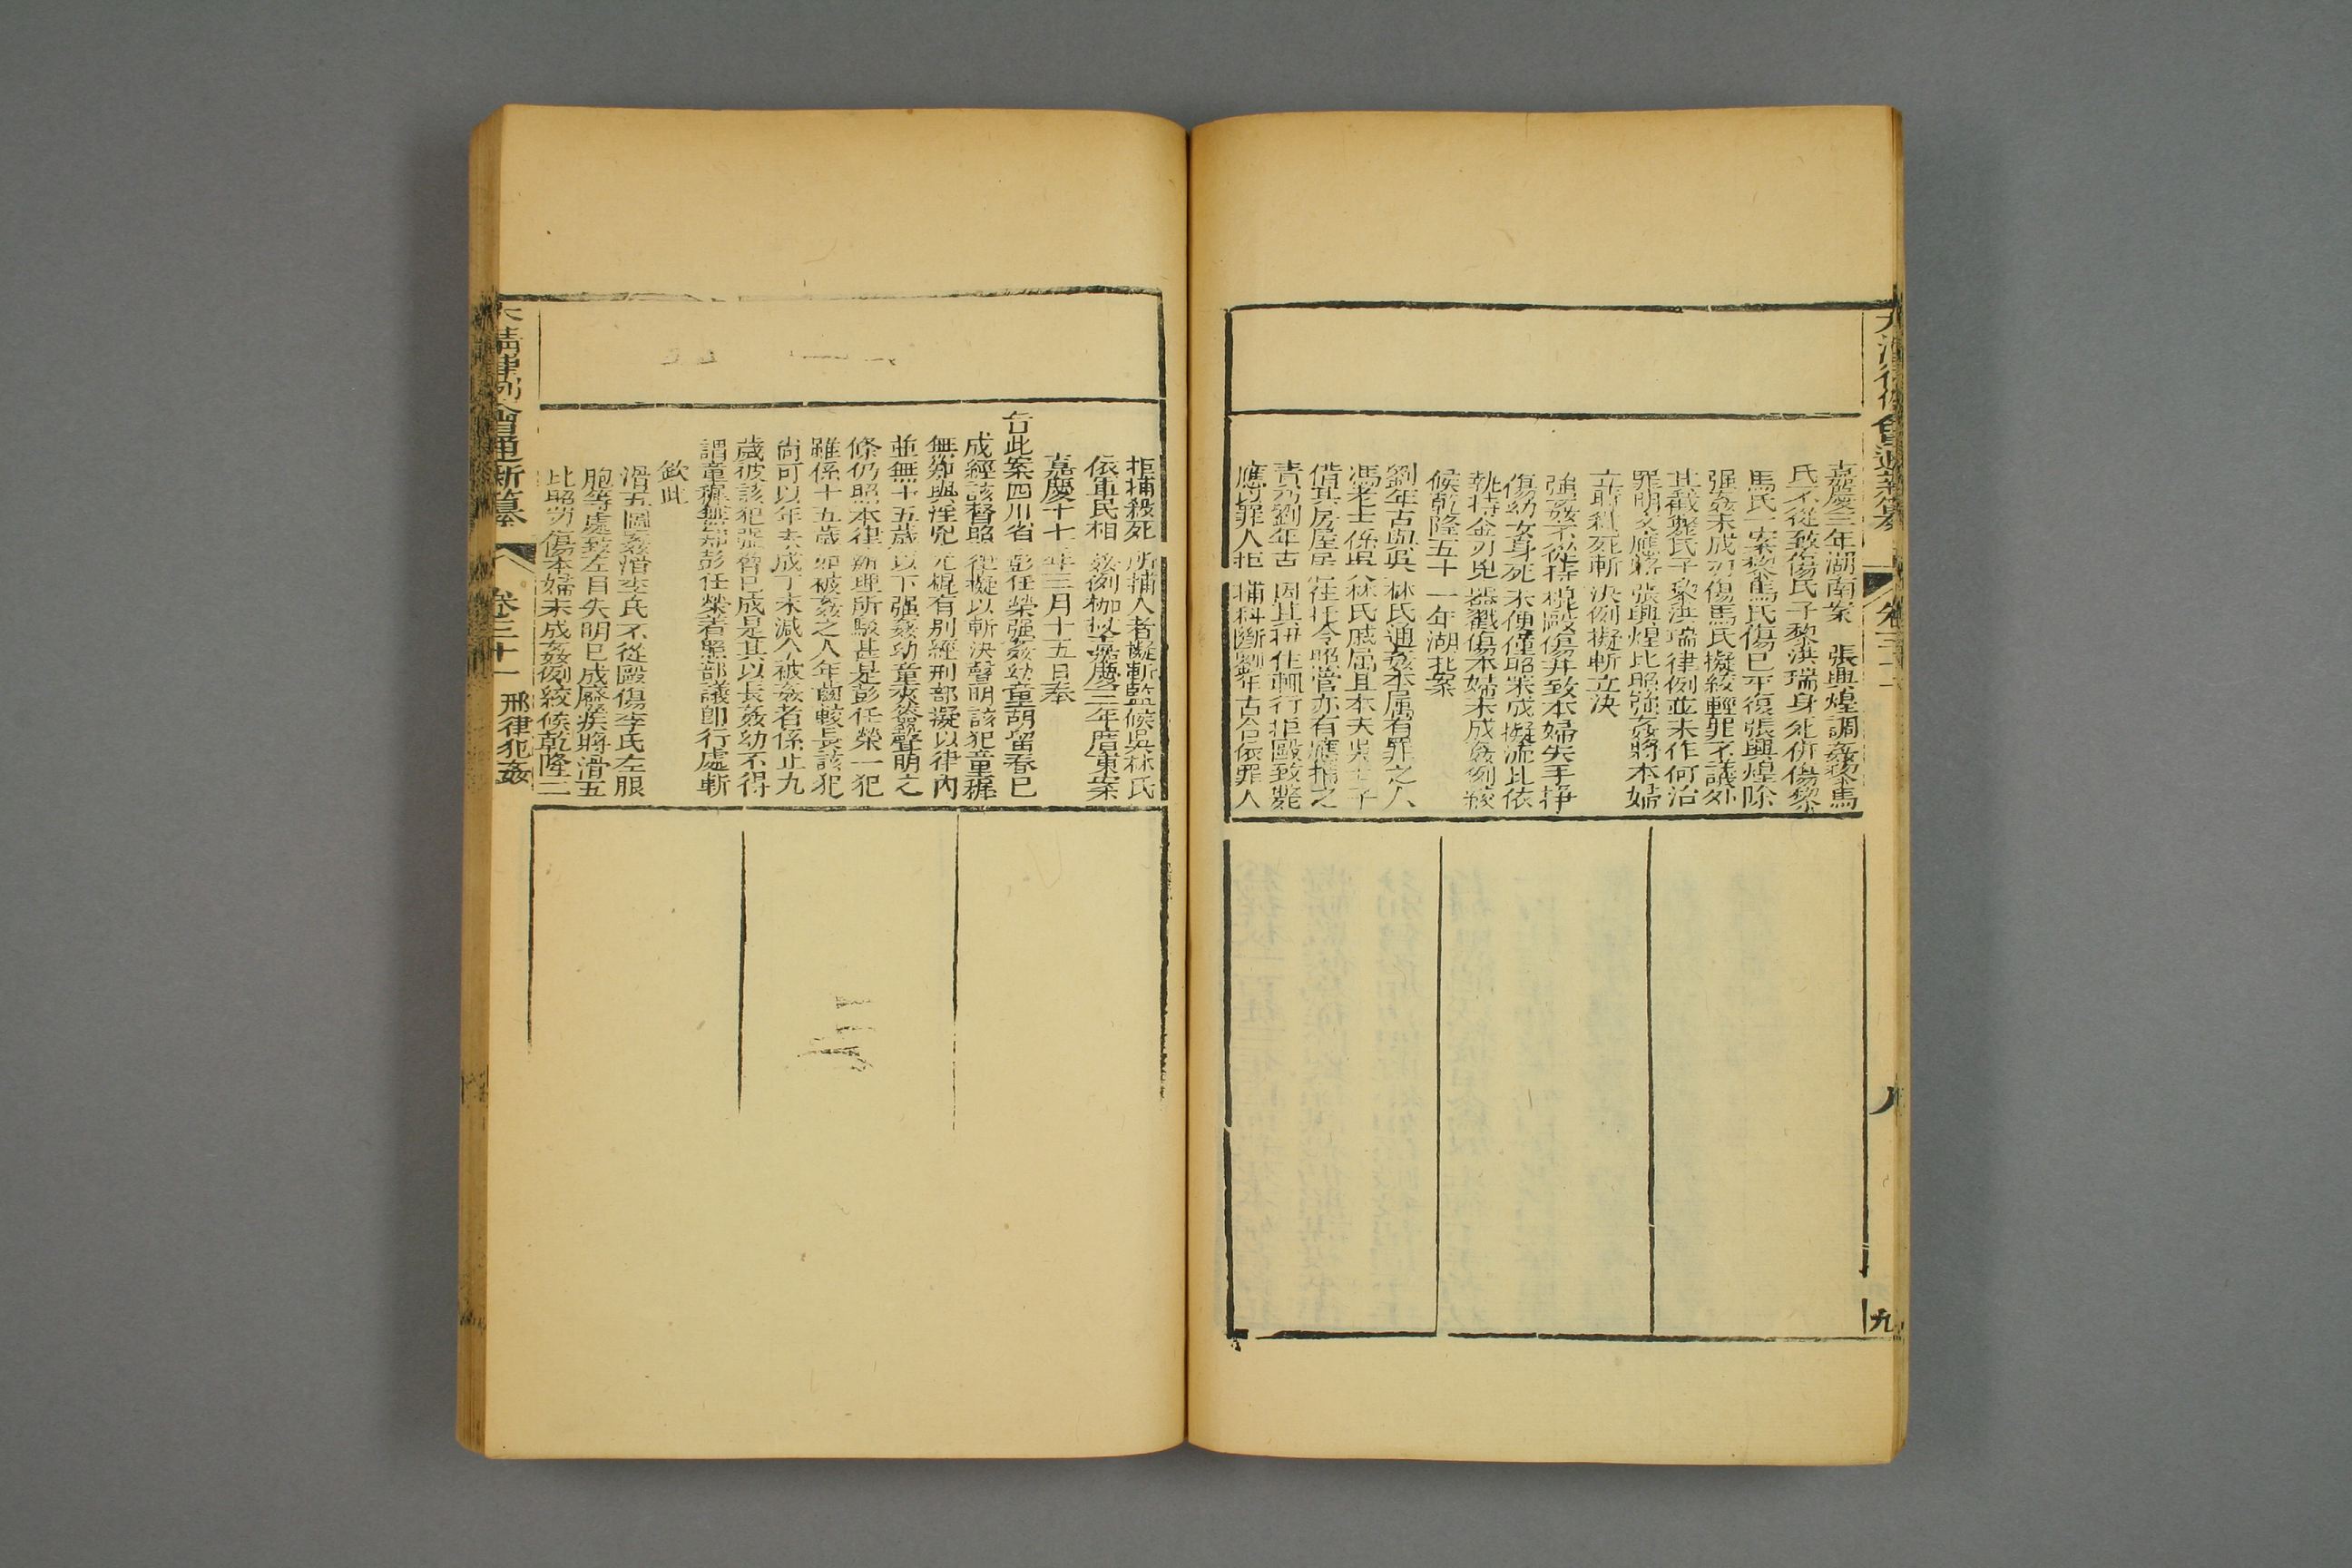 大清律例會通新纂
卷三十一
九
嘉慶三年湖南案　張興煌調姦黎馬
氏不從致傷氏子黎洪瑞身死併傷黎
馬氏一案黎馬氏傷已平復張興煌除
强姦未成刃傷馬氏擬絞輕罪不議外
其戳斃氏子黎洪瑞律例並未作何治
罪明文應將張興煌比照强姦將本婦
立時殺死斬決例擬斬立決
強姦不從持棍毆傷并致本婦失手掙
傷幼女身死未便僅照未成擬流比依
執持金刃兇器戳傷本婦未成姦例絞
候乾隆五十一年湖北案
劉年古與吳林氏通姦本屬有罪之人
馮老士係吳林氏戚屬且本夫吳士子
借其房屋居住托令照管亦有應捕之
責乃劉年古因其
行拒毆致斃
應以罪人拒捕科斷劉年古合依罪人
拒捕殺死所捕人者擬斬監候吳林氏
依軍民相姦例枷杖嘉慶二年廣東案
嘉慶十七年三月十五日奉
旨此案四川省彭任榮强姦幼童胡留春已
成經該督照律擬以斬決聲明該犯童穉
無知與淫兇光棍有別經刑部擬以律內
並無十五歲以下强姦幼童夾簽聲明之
條仍照本律辦理所駁甚是彭任榮一犯
雖係十五歲而被姦之人年齒較長該犯
尚可以年未成丁末減今被姦者係止九
歲彼該犯强脅已成是其以長姦幼不得
謂童穉無知彭任榮著照部議即行處斬
欽此
滑五圖姦滑李氏不從毆傷李氏左眼
胞等處致左目失明已成廢疾將滑五
比照刃傷本婦未成姦例絞候乾隆二
大清律例會通新纂
卷三十一
刑律犯姦